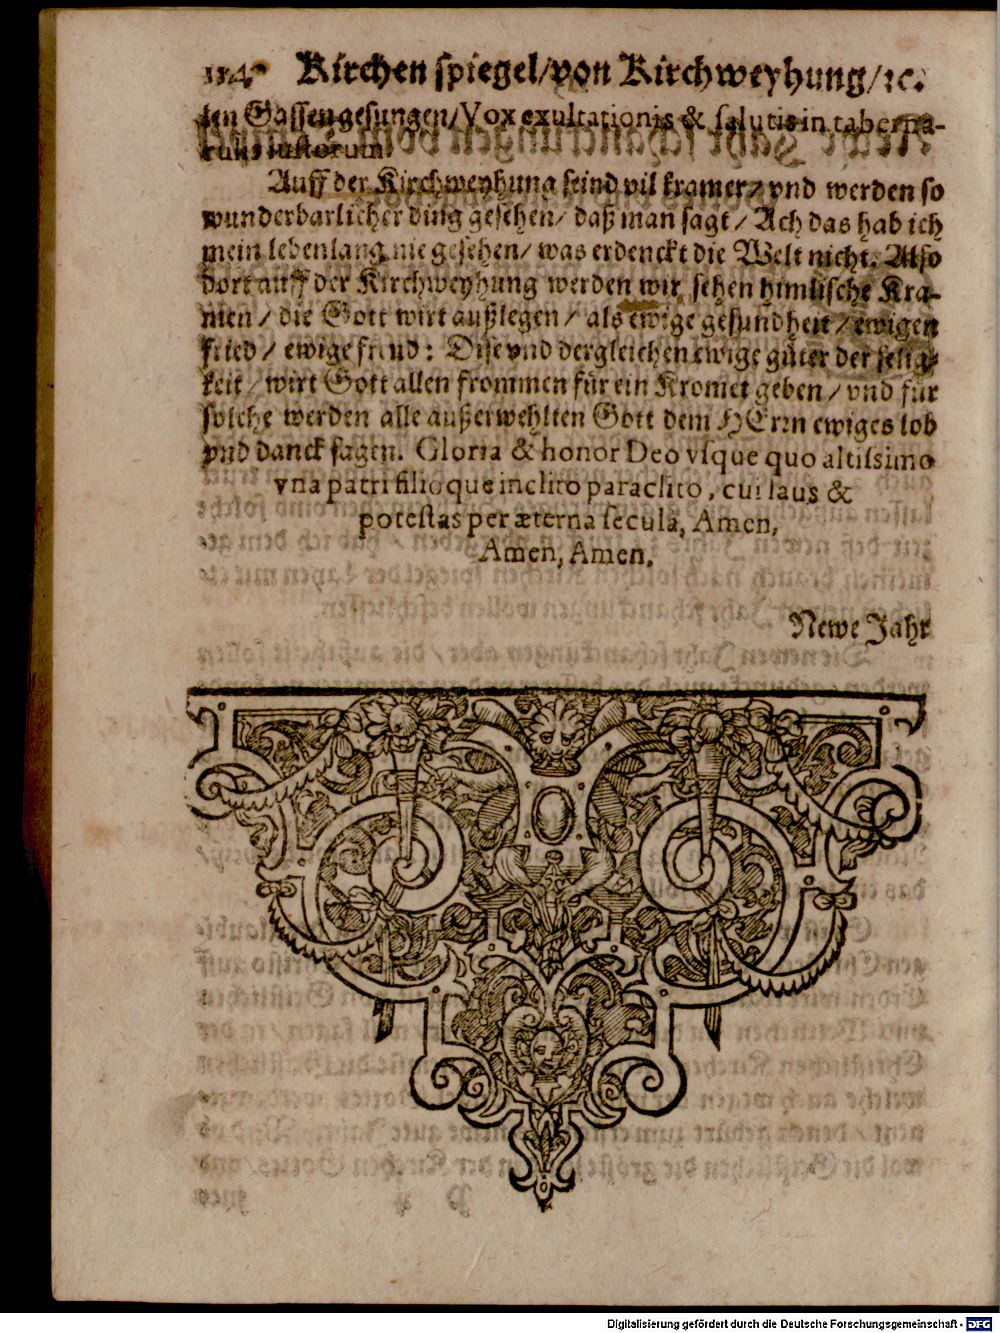 114 Kirchen spiegel/von Kirchweyhung/ꝛc.
ten Gassen gesungen/Vox exultationis & salutis in taberna-
culis iustorum.
Auff der Kirchweyhung seind vil kramer/vnd werden so
wunderbarlicher ding gesehen/ daß man sagt/ Ach das hab ich
mein lebenlang nie gesehen/ was erdenckt die Welt nicht. Also
dort auff der Kirchweyhung werden wir sehen himlische Kra-
men/ die Gott wirt außlegen/ als ewige gesundheit/ ewigen
fried/ ewige freud: Dise vnd dergleichen ewige güter der selig-
keit/ wirt Gott allen frommen für ein Kromet geben/ vnd für
solche werden alle außerwehlten Gott dem HErrn ewiges lob
vnd danck sagen. Gloria & honor Deo vsque quo altissimo
vna patri filioque inclito paraclito, cui laus &
potestas per æterna secula, Amen,
Amen, Amen.
Newe Jahr
Digitalisierung gefördert durch die Deutsche Forschungsgemeinschaft - DFG